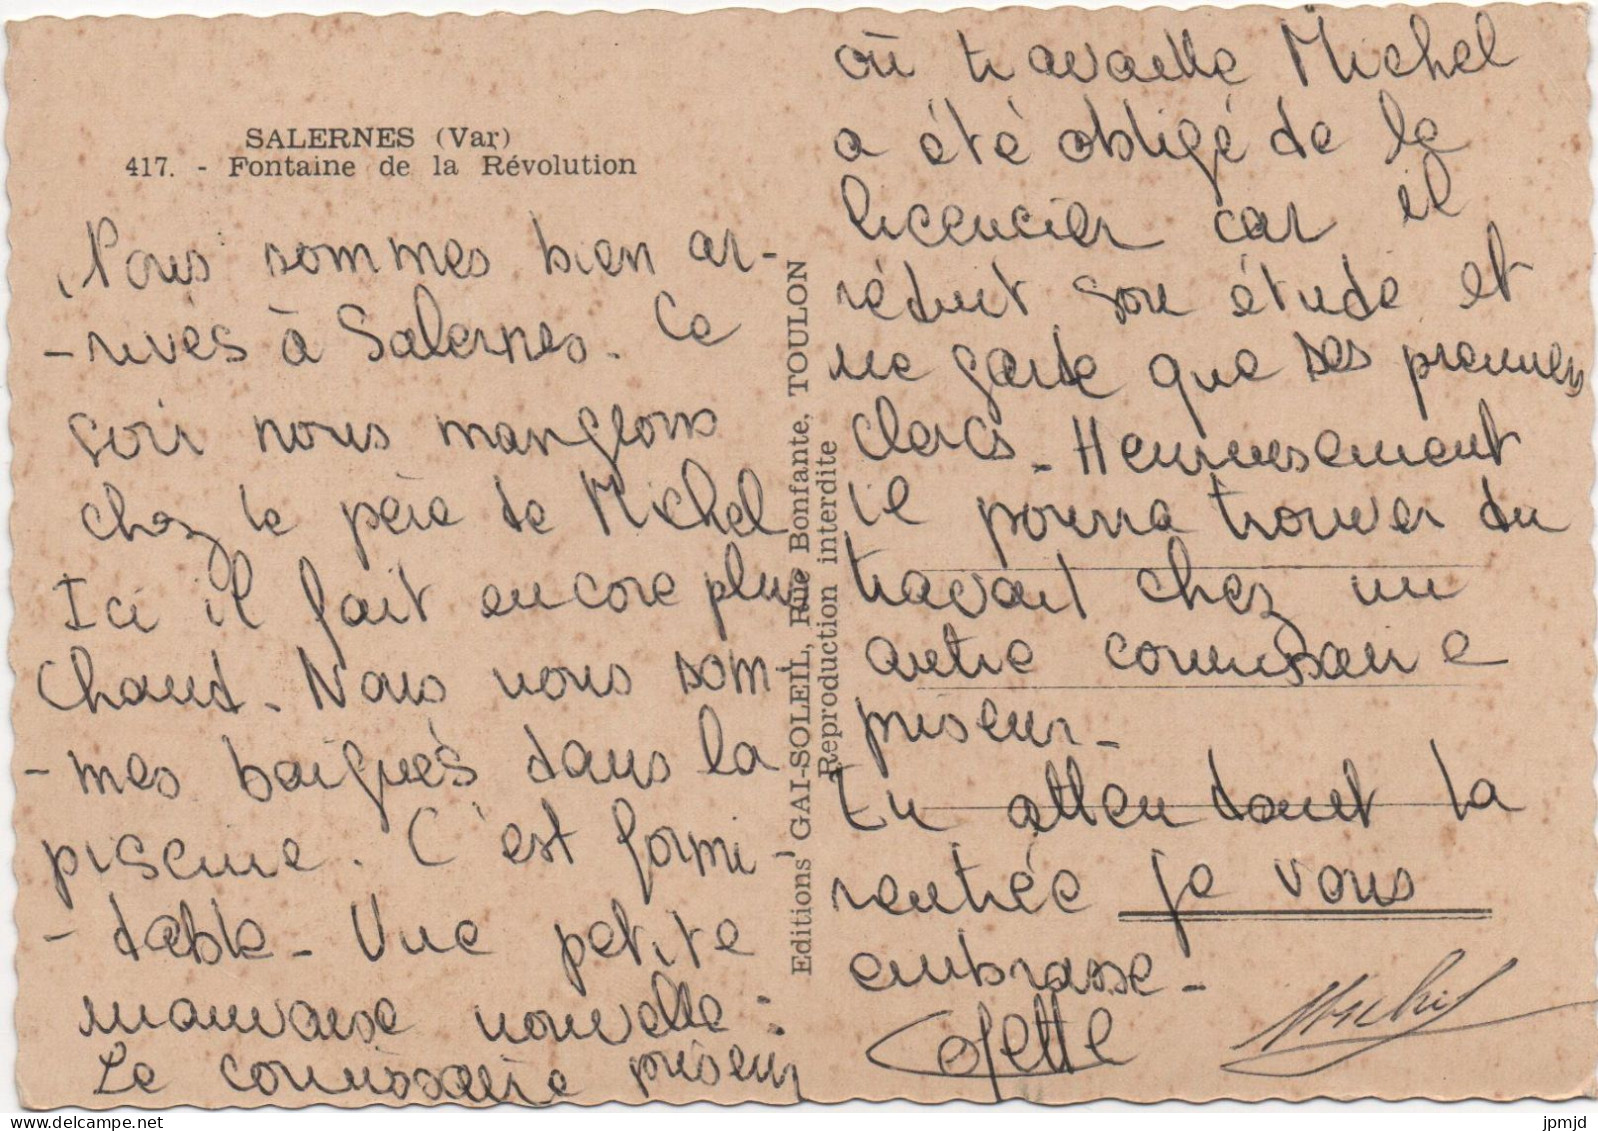 SALERNES (Var)
417. - Fontaine de la Révolution
Nous sommes bien ar-
-rivés à Salernes. Ce
soir nous mangeons
chez le père de Michel
Ici il fait encore plus
chaud. Nous nous som
-mes baignés dans la
piscine. C'est formi
-dable - Une petite
mauvaise nouvelle :
Le commissaire priseur
Editions GAI-SOLEIL, Rue Bonfante, TOULON
Reproduction interdite
où travaille Michel
a été obligé de le
licencier car il
réduit son étude et
ne garde que ses premiers
clercs - Heureusement
il pourra trouver du
travail chez un
autre commissaire
priseur -
En attendant la
rentrée je vous
embrasse -
Colette Michel
jpmjd